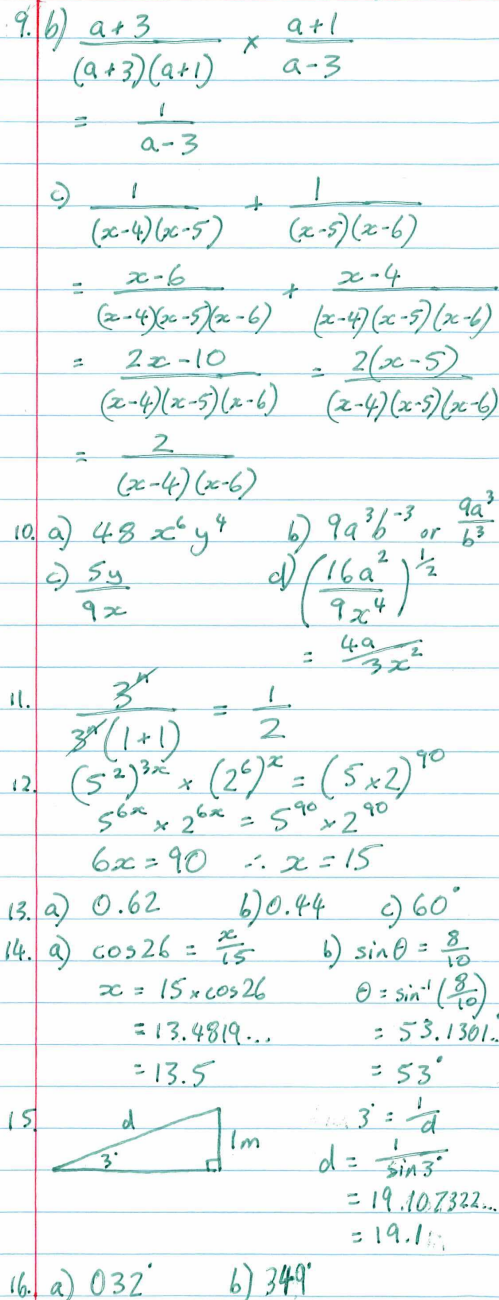 9. b) (a+3)/((a+3)(a+1)) × (a+1)/(a-3)
= 1/(a-3)
c) 1/((x-4)(x-5)) + 1/((x-5)(x-6))
= (x-6)/((x-4)(x-5)(x-6)) + (x-4)/((x-4)(x-5)(x-6))
= (2x-10)/((x-4)(x-5)(x-6)) = 2(x-5)/((x-4)(x-5)(x-6))
= 2/((x-4)(x-6))
10. a) 48 x⁶y⁴ b) 9a³b⁻³ or 9a³/b³
c) 5y/9x d) (16a²/9x⁴)^½
= 4a/3x²
11. 3ⁿ/(3ⁿ(1+1)) = 1/2
12. (5²)³ˣ × (2⁶)ˣ = (5×2)⁹⁰
5⁶ˣ × 2⁶ˣ = 5⁹⁰ × 2⁹⁰
6x = 90 ∴ x = 15
13. a) 0.62 b) 0.44 c) 60°
14. a) cos26 = x/15 b) sinθ = 8/10
x = 15×cos26 θ = sin⁻¹(8/10)
= 13.4819... = 53.1301..
= 13.5 = 53°
15. d 3° 1m 3° = 1/d
d = 1/sin3°
= 19.107322...
= 19.1
16. a) 032° b) 349°